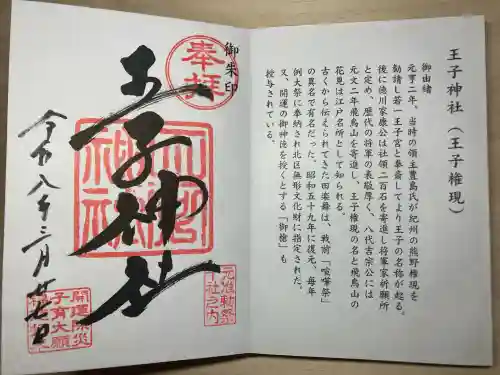 王子神社（王子権現）
御由緒
元亨二年、当時の領主豊島氏が紀州の熊野権現を
勧請し若一王子宮と奉斎してより王子の名称が起る。
後に徳川家康公は社領二百石を寄進し将軍家祈願所
と定め、歴代の将軍の表敬厚く、八代吉宗公には
元文二年飛鳥山を寄進し、王子権現の名と飛鳥山の
花見は江戸名所として知られる。
古くから伝えられてきた田楽舞は、戦前「喧嘩祭」
の異名で有名だった。昭和五十九年に復元、毎年
例大祭に奉納され北区無形文化財に指定された。
又、開運の御神徳を授くとする「御槍」も
授与されている。
御朱印
奉拝
王子神社
令和八年三月廿七日
元准勅祭
社之内
開運除災
子育大願